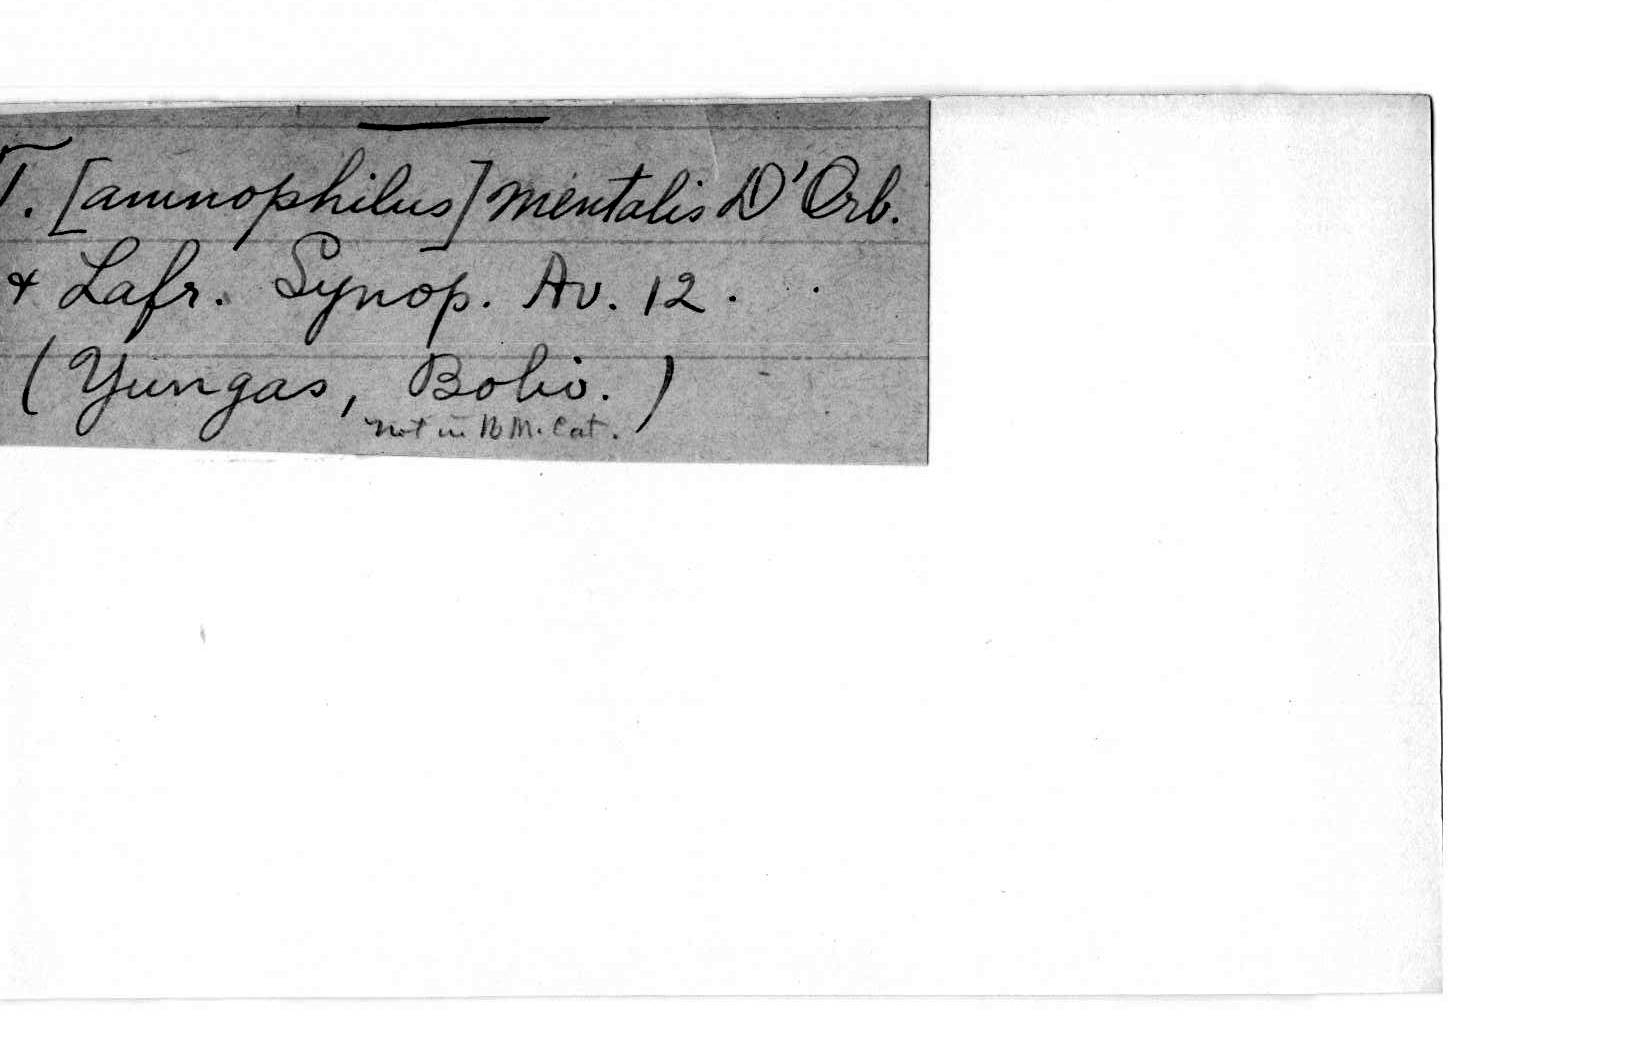 T. [amnophilus] mentalis D'Orb.
& Lafr. Synop. Av. 12.
(Yungas, Boliv.)
not in B M. Cat.